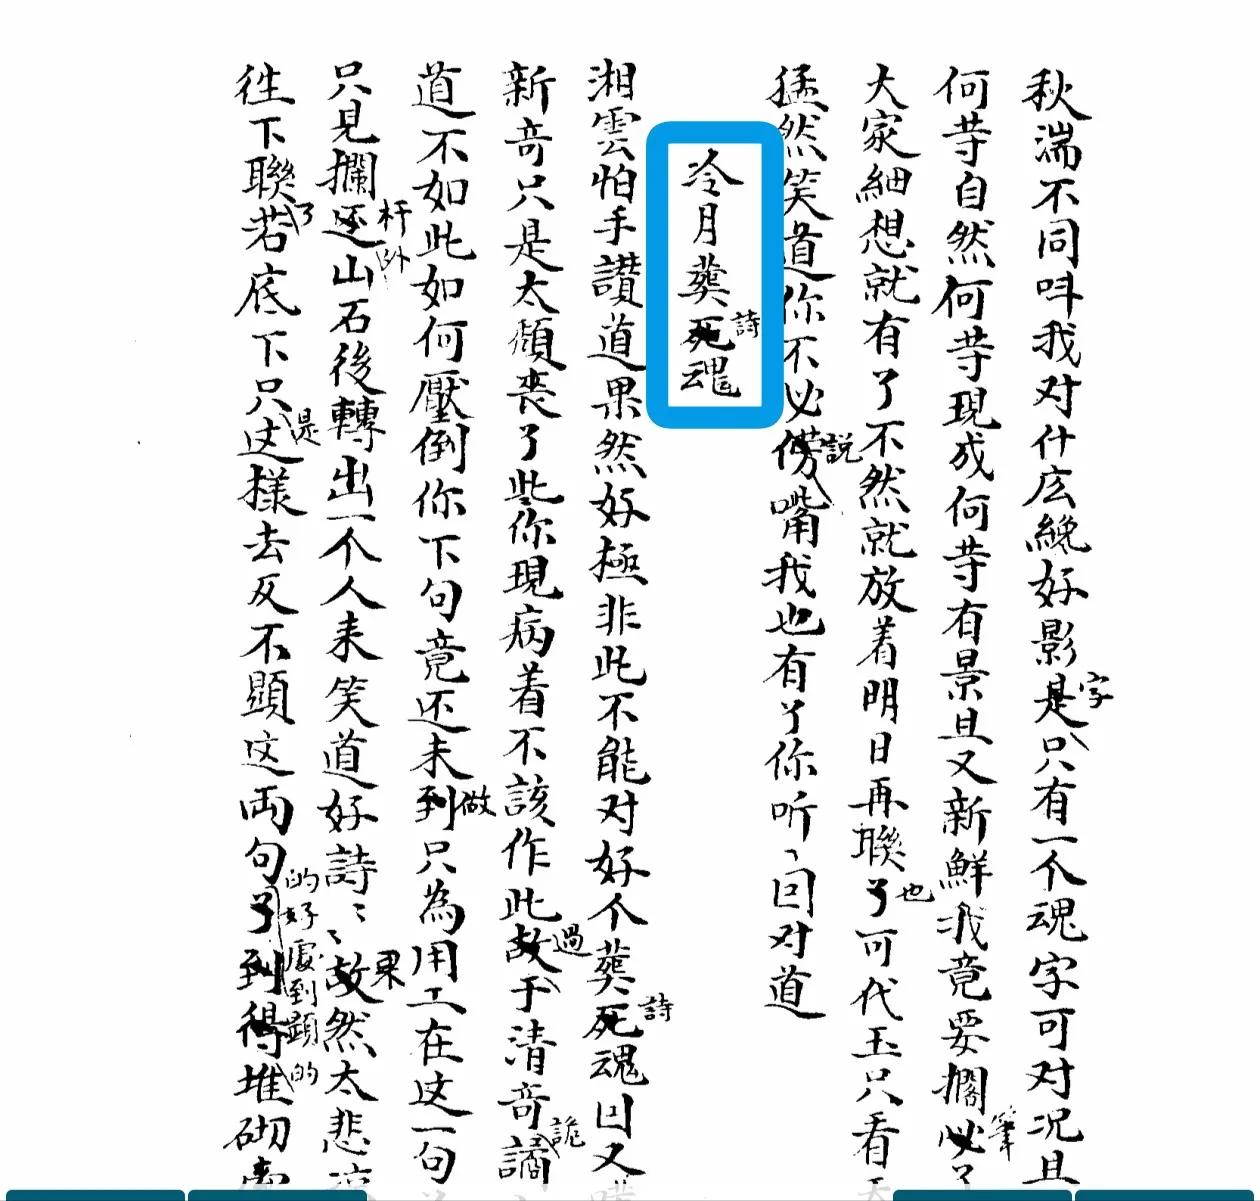 秋湍不同呌我对什庅纔好影是只有一个魂字可对况且
字
何䓁自然何䓁現成何䓁有景且又新鮮我竟要擱必了
筆
大家細想就有了不然就放着明日再聯了可代玉只看
也
猛然笑道你不必傍嘴我也有了你听〻回对道
説
冷月葬死魂
詩
湘雲怕手讃道果然好極非此不能对好个葬死魂因又
詩
新奇只是太頹丧了些你現病着不該作此故于清奇譎
過
詭
道不如此如何壓倒你下句竟还未到只為用工在这一句
做
只見攔还山石後轉出一个人来笑道好詩〻〻故然太悲涼
杆外
果
徃下聯若底下只这樣去反不顕这両句了到得堆砌牽
了
是
的好處到顕的